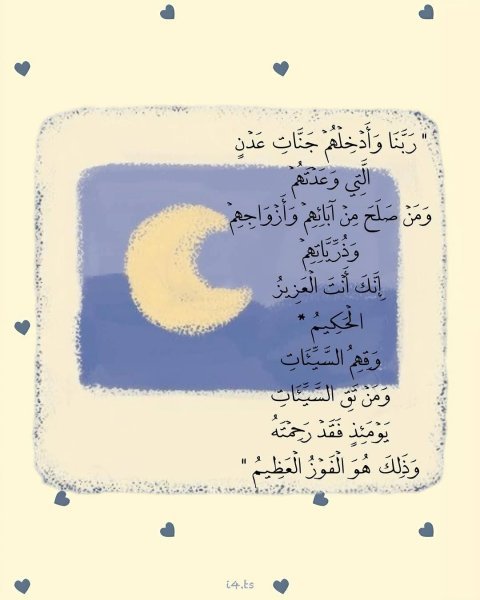 " رَبَّنَا وَأَدْخِلْهُمْ جَنَّاتِ عَدْنٍ
الَّتِي وَعَدْتَهُمْ
وَمَنْ صَلَحَ مِنْ آبَائِهِمْ وَأَزْوَاجِهِمْ
وَذُرِّيَّاتِهِمْ
إِنَّكَ أَنْتَ الْعَزِيزُ
الْحَكِيمُ *
وَقِهِمُ السَّيِّئَاتِ
وَمَنْ تَقِ السَّيِّئَاتِ
يَوْمَئِذٍ فَقَدْ رَحِمْتَهُ
وَذَلِكَ هُوَ الْفَوْزُ الْعَظِيمُ "
i4.ts